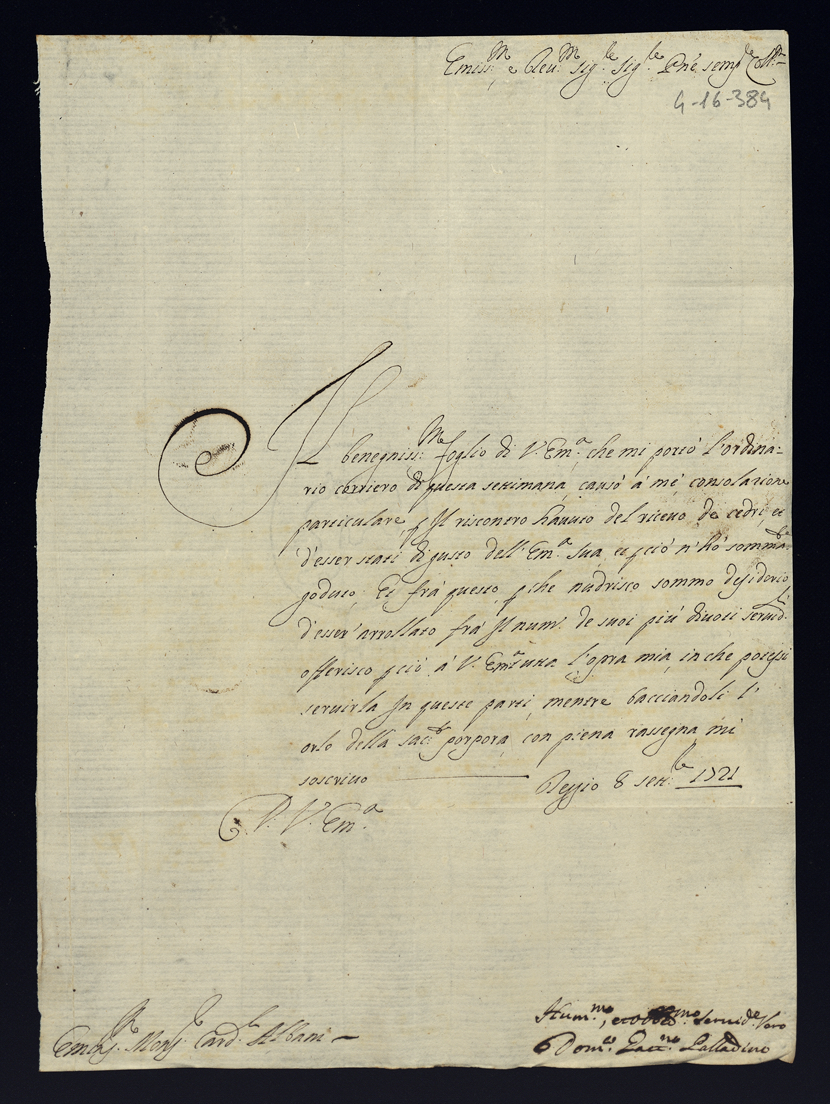 Emin:ᵐ e Reu:ᵐ Sig:ʳᵉ Sig:ʳᵉ P̃ne semp:ʳᵉ
4-16-384
Il benegniss:ᵐᵒ foglio di V. Em:ᵃ che mi portò l'ordina=
rio corriero di questa settimana, causò à mé consolatione
particulare, p il riscontro hauuto del riceuo de cedri, et
d'esser stati di gusto dell'Em:ᵃ Sua, et pciò n'hò somma:ᵗᵉ
goduto: Et frà questo, pche nudrisco sommo desiderio
d'esser'arrollato frà il num:ᵒ de suoi più diuoti seruid:ʳⁱ
offerisco pciò à V. Em:ᵃ tutta l'opra mia, in che potessi
seruirla in queste parti, mentre bacciandoli l'
orlo della sac:ᵃ porpora, con piena rassegna, mi
soscriuo Reggio 8 sett:ᵇʳᵉ 1721
D. V. Em:ᵃ
Hum:ᵐᵒ, et obb:ᵐᵒ seruid:ʳᵉ Vero
Dom:ᶜᵒ Palladino
Card:ˡᵉ Albani